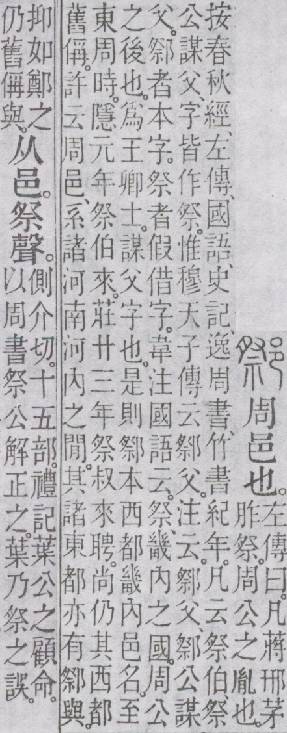 䣝 周邑也。
左傳曰。凡蔣邢茅
胙祭。周公之胤也。
按春秋經、左傳、國語、史記、逸周書、竹書紀年。凡云祭伯祭
公謀父、字皆作祭。惟穆天子傳云䣝父。注云。䣝父、䣝公謀
父。䣝者本字。祭者假借字。韋注國語云。祭、畿內之國。周公
之後也。爲王卿士。謀父字也。是則䣝本西都畿內邑名。至
東周時。隱元年祭伯來。莊廿三年祭叔來聘。尚仍其西都
舊偁。許云周邑、系諸河南河內之閒。其諸東都亦有䣝與。
抑如鄭之
仍舊偁與。
从邑。祭聲。
側介切。十五部。禮記葉公之顧命。
以周書祭公解正之。葉乃祭之誤。